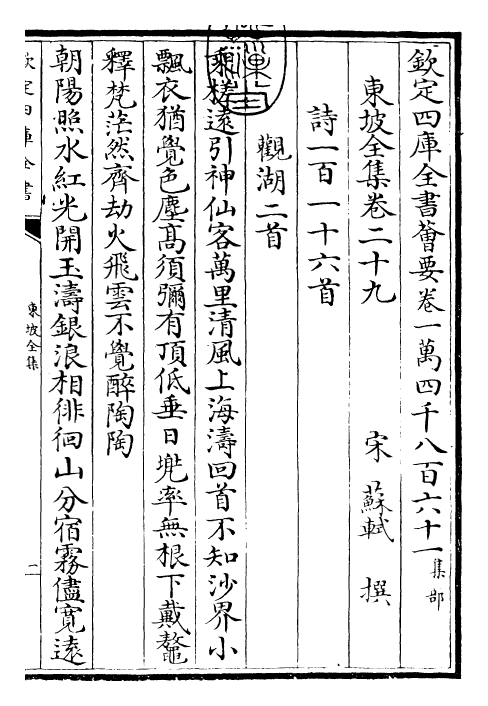 欽定四庫全書薈要卷一萬四千八百六十一集部
東坡全集卷二十九
宋 蘇軾 撰
詩一百一十六首
觀湖二首
乘槎遠引神仙客萬里清風上海濤回首不知沙界小
飄衣猶覺色塵髙須彌有頂低垂日兠率無根下戴鼇
釋梵茫然齊劫火飛雲不覺醉陶陶
朝陽照水紅光開玉濤銀浪相徘徊山分宿霧儘寛逺
欽定四庫全書
東坡全集